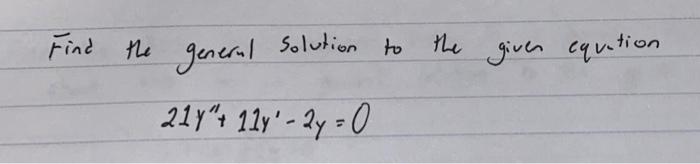 Find the general Solution to the given equation
21y" + 11y' - 2y = 0